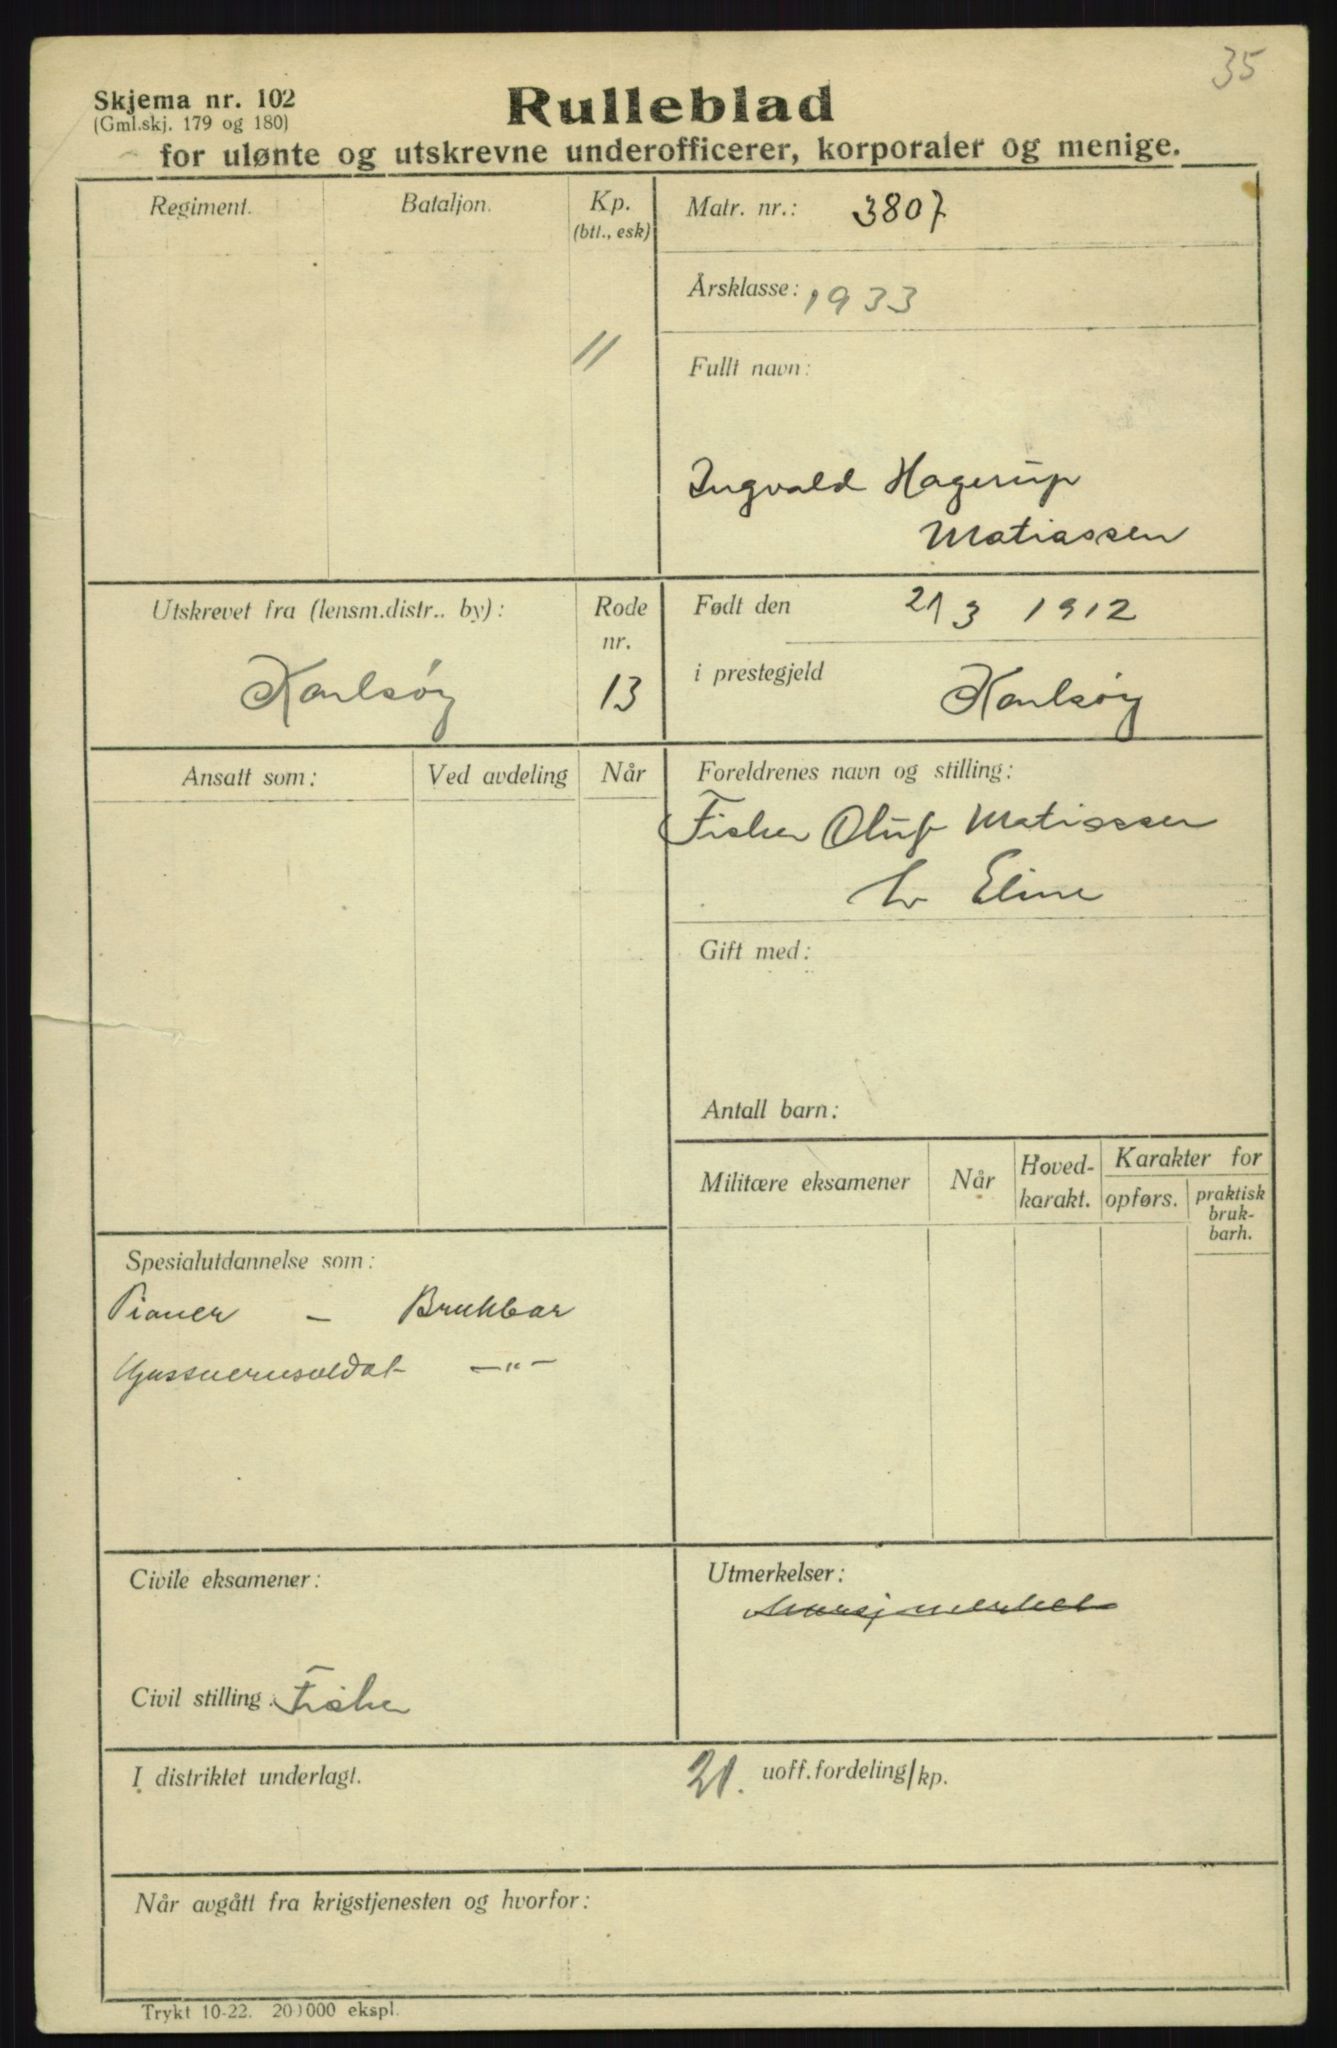 35
Skjema nr. 102
(Gml.skj. 179 og 180)
Rulleblad
for ulønte og utskrevne underofficerer, korporaler og menige.
Regiment.
Bataljon.
Kp.
(btl., esk)
11
Matr. nr.: 3807
Årsklasse: 1933
Fullt navn:
Ingvald Hagerup
Matiassen
Utskrevet fra (lensm.distr.. by):
Karlsøy
Rode
nr.
13
Født den 21 3 1912
i prestegjeld Karlsøy
Ansatt som:
Ved avdeling
Når
Foreldrenes navn og stilling:
Fisker Oluf Matiassen
Eline
Gift med:
Antall barn:
Militære eksamener
Når
Hoved-
karakt.
Karakter for
opførs.
praktisk
bruk-
barh.
Spesialutdannelse som:
Pioner – Brukbar
Gassvernsoldat —"—
Civile eksamener:
Utmerkelser:
Civil stilling: Fisker
I distriktet underlagt.
21. uoff.fordeling/kp.
Når avgått fra krigstjenesten og hvorfor:
Trykt 10-22. 200000 ekspl.